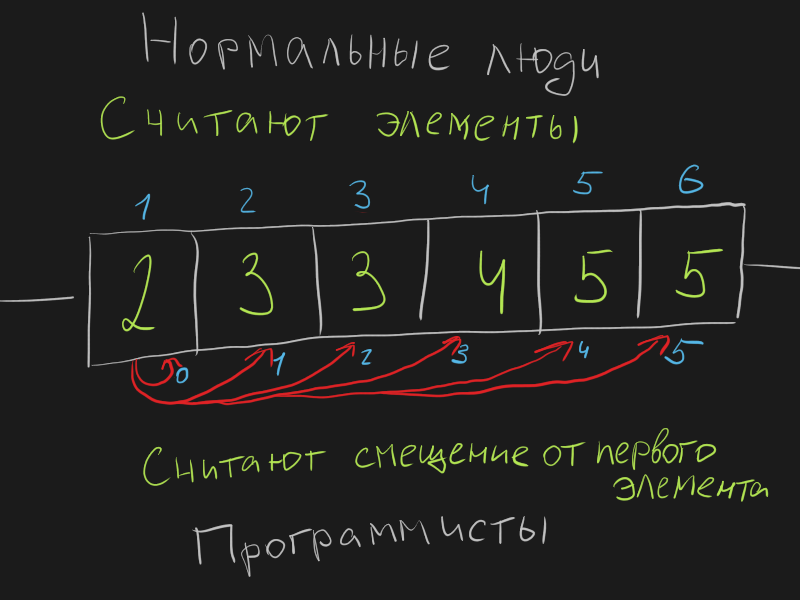 Нормальные люди
Считают элементы
1 2 3 4 5 6
2 3 3 4 5 5
0 1 2 3 4 5
Считают смещение от первого
элемента
Программисты